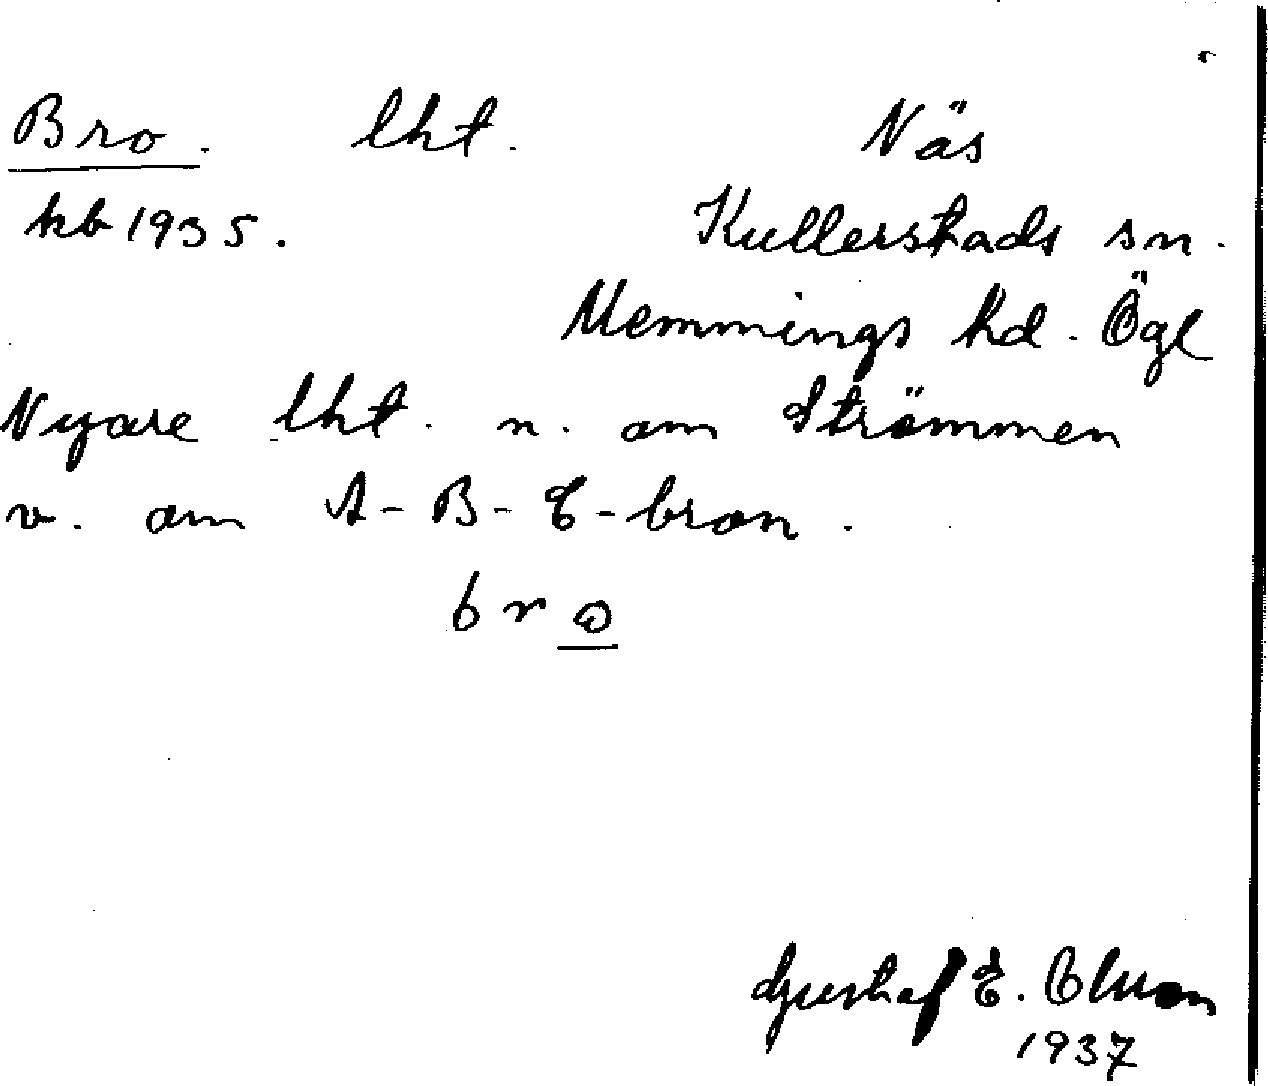 Bro. lht. Näs
kb 1935. Kullerstads sn.
Memmings hd. Ögl
Nyare lht. n. om Strömmen
v. om A-B-C-bron.
bro
Gustaf E. Olsson
1937